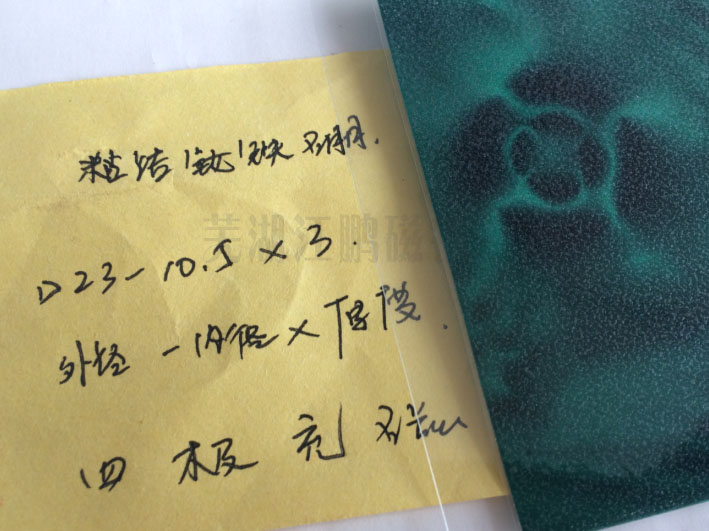 粘结钕铁硼.
芜湖江鹏磁
D23-10.5×3.
外径-内径×厚度.
四极充磁